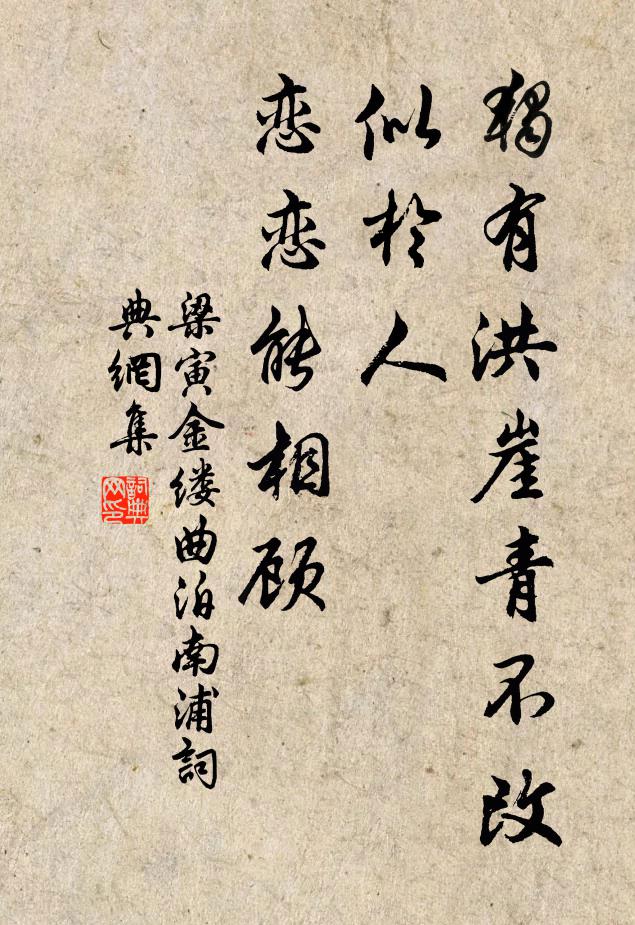 獨有洪崖青不改
似於人
恋恋能相顾
梁寅金缕曲泊南浦詞
典網集
詞典网印